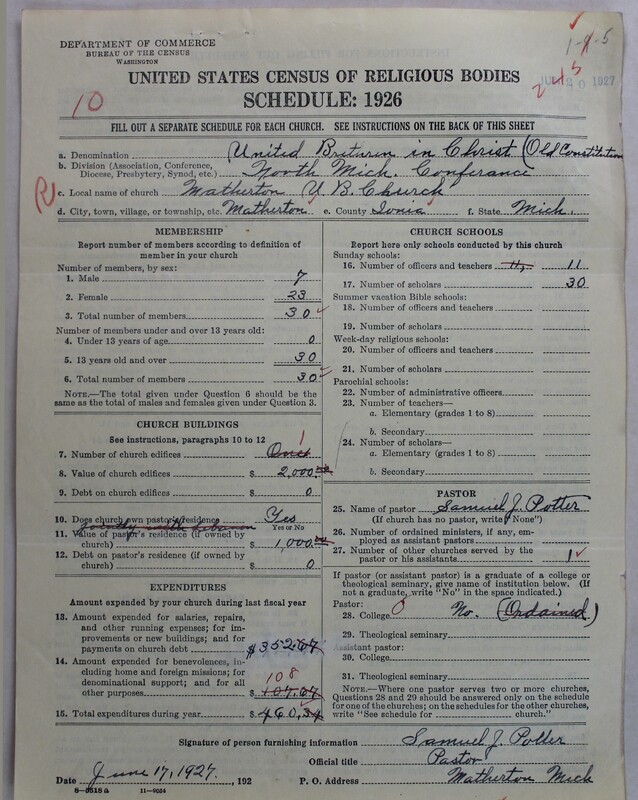 DEPARTMENT OF COMMERCE
BUREAU OF THE CENSUS
WASHINGTON
1-9-5
245
1927
UNITED STATES CENSUS OF RELIGIOUS BODIES
10
SCHEDULE: 1926
FILL OUT A SEPARATE SCHEDULE FOR EACH CHURCH. SEE INSTRUCTIONS ON THE BACK OF THIS SHEET
a. Denomination United Bretern in Christ (Old Constitution
b. Division (Association, Conference, Diocese, Presbytery, Synod, etc.) North Mich. Conferance
R
c. Local name of church Matherton U. B. Church
d. City, town, village, or township, etc. Matherton e. County Ionia f. State Mich.
MEMBERSHIP
Report number of members according to definition of
member in your church
Number of members, by sex:
1. Male 7
2. Female 23
3. Total number of members 30
Number of members under and over 13 years old:
4. Under 13 years of age 0
5. 13 years old and over 30
6. Total number of members 30
NOTE.—The total given under Question 6 should be
same as the total of males and females given under Question 3.
CHURCH BUILDINGS
See instructions, paragraphs 10 to 12
1
7. Number of church edifices One
8. Value of church edifices $ 2,000.00
9. Debt on church edifices $ 0
10. Does church own pastor's residence? Yes
Yes or No
Jointly with Lebanon
11. Value of pastor's residence (if owned by
church) $ 1,000.00
12. Debt on pastor's residence (if owned by
church) $ 0
EXPENDITURES
Amount expended by your church during last fiscal year
13. Amount expended for salaries, repairs,
and other running expenses; for im-
provements or new buildings; and for
payments on church debt $352.67
14. Amount expended for benevolences, in-
cluding home and foreign missions; for
denominational support; and for all
other purposes $ 107.67
108
15. Total expenditures during year $460.34
CHURCH SCHOOLS
Report here only schools conducted by this church
Sunday schools:
16. Number of officers and teachers 11, 11
17. Number of scholars 30
Summer vacation Bible schools:
18. Number of officers and teachers
19. Number of scholars
Week-day religious schools:
20. Number of officers and teachers
21. Number of scholars
Parochial schools:
22. Number of administrative officers
23. Number of teachers—
a. Elementary (grades 1 to 8)
b. Secondary
24. Number of scholars—
a. Elementary (grades 1 to 8)
b. Secondary
PASTOR
25. Name of pastor Samuel J. Potter
(If church has no pastor, write "None")
26. Number of ordained ministers, if any, em-
ployed as assistant pastors
27. Number of other churches served by the
pastor or his assistants 1
If pastor (or assistant pastor) is a graduate of a college or
theological seminary, give name of institution below. (If
not a graduate, write "No" in the space indicated.)
Pastor: 0
28. College No. (Ordained)
29. Theological seminary
Assistant pastor:
30. College
31. Theological seminary
NOTE.—Where one pastor serves two or more churches,
Questions 28 and 29 should be answered only on the schedule
for one of the churches; on the schedules for the other churches,
write "See schedule for church."
Signature of person furnishing information Samuel J. Potter
Official title Pastor
Date June 17, 1927. , 192 P. O. Address Matherton Mich
8—5518 a 11—9054